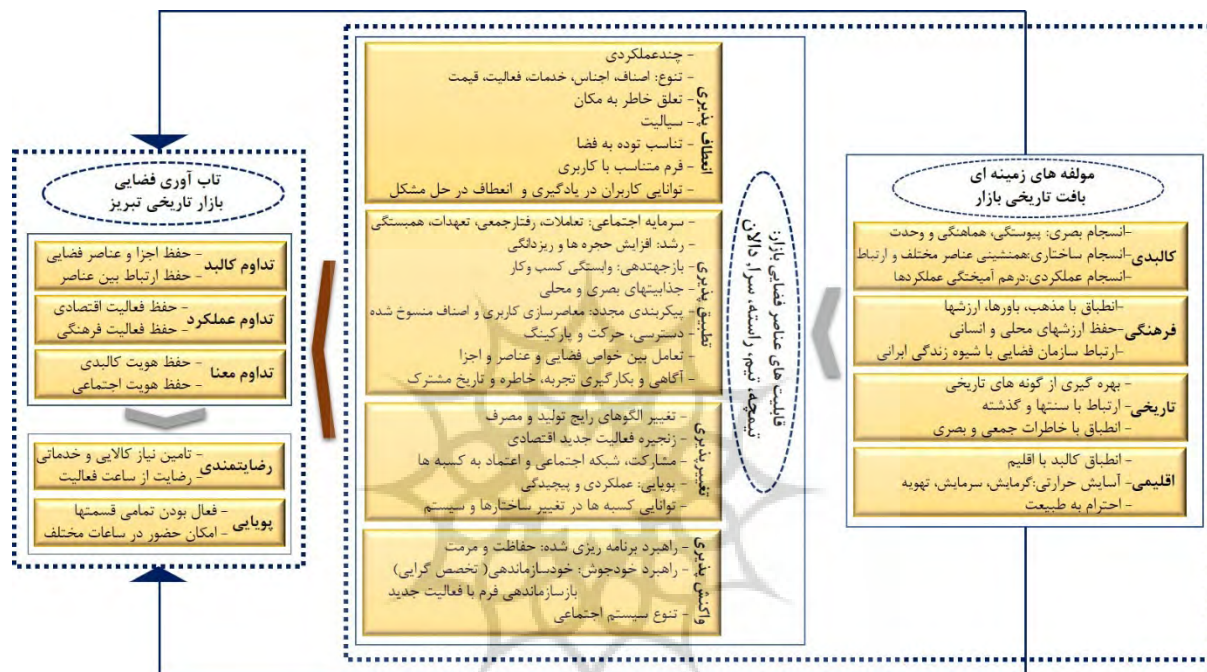 مولفه های زمینه ای
بافت تاریخی بازار
کالبدی
-انسجام بصری: پیوستگی، هماهنگی و وحدت
-انسجام ساختاری:همنشینی عناصر مختلف و ارتباط
-انسجام عملکردی:درهم آمیختگی عملکردها
فرهنگی
-انطباق با مذهب، باورها، ارزشها
-حفظ ارزشهای محلی و انسانی
-ارتباط سازمان فضایی با شیوه زندگی ایرانی
تاریخی
- بهره گیری از گونه های تاریخی
- ارتباط با سنتها و گذشته
- انطباق با خاطرات جمعی و بصری
اقلیمی
- انطباق کالبد با اقلیم
- آسایش حرارتی:گرمایش، سرمایش، تهویه
- احترام به طبیعت
قابلیت های عناصر فضایی بازار:
تیمچه، تیم، راسته، سرا، دالان
انعطاف پذیری
- چندعملکردی
- تنوع: اصناف، اجناس، خدمات، فعالیت، قیمت
- تعلق خاطر به مکان
- سیالیت
- تناسب توده به فضا
- فرم متناسب با کاربری
- توانایی کاربران در یادگیری و انعطاف در حل مشکل
تطبیق پذیری
- سرمایه اجتماعی: تعاملات، رفتارجمعی، تعهدات، همبستگی
- رشد: افزایش حجره ها و ریزدانگی
- بازجهتدهی: وابستگی کسب وکار
- جذابیتهای بصری و محلی
- پیکربندی مجدد: معاصرسازی کاربری و اصناف منسوخ شده
- دسترسی، حرکت و پارکینگ
- تعامل بین خواص فضایی و عناصر و اجزا
- آگاهی و بکارگیری تجربه، خاطره و تاریخ مشترک
تغییرپذیری
- تغییر الگوهای رایج تولید و مصرف
- زنجیره فعالیت جدید اقتصادی
- مشارکت، شبکه اجتماعی و اعتماد به کسبه ها
- پویایی: عملکردی و پیچیدگی
- توانایی کسبه ها در تغییر ساختارها و سیستم
واکنش پذیری
- راهبرد برنامه ریزی شده: حفاظت و مرمت
- راهبرد خودجوش: خودسازماندهی( تخصص گرایی)
بازسازماندهی فرم با فعالیت جدید
- تنوع سیستم اجتماعی
تاب آوری فضایی
بازار تاریخی تبریز
تداوم کالبد
- حفظ اجزا و عناصر فضایی
- حفظ ارتباط بین عناصر
تداوم عملکرد
- حفظ فعالیت اقتصادی
- حفظ فعالیت فرهنگی
تداوم معنا
- حفظ هویت کالبدی
- حفظ هویت اجتماعی
رضایتمندی
- تامین نیاز کالایی و خدماتی
- رضایت از ساعت فعالیت
پویایی
- فعال بودن تمامی قسمتها
- امکان حضور در ساعات مختلف